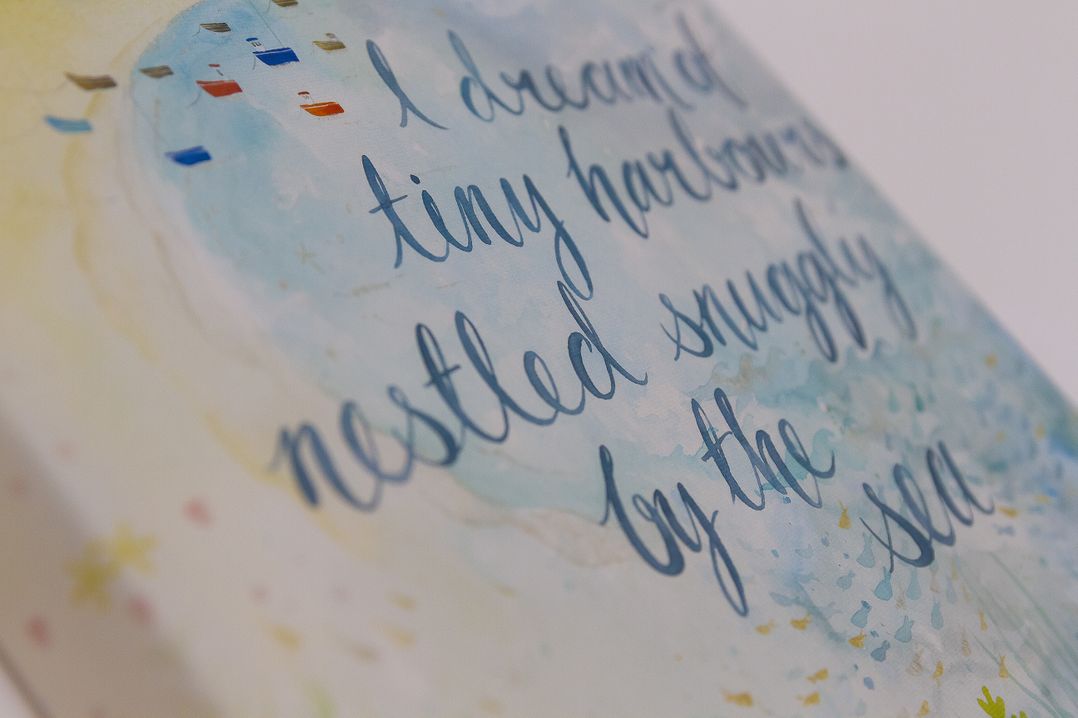 I dream of
tiny harbours
nestled snuggly
by the sea